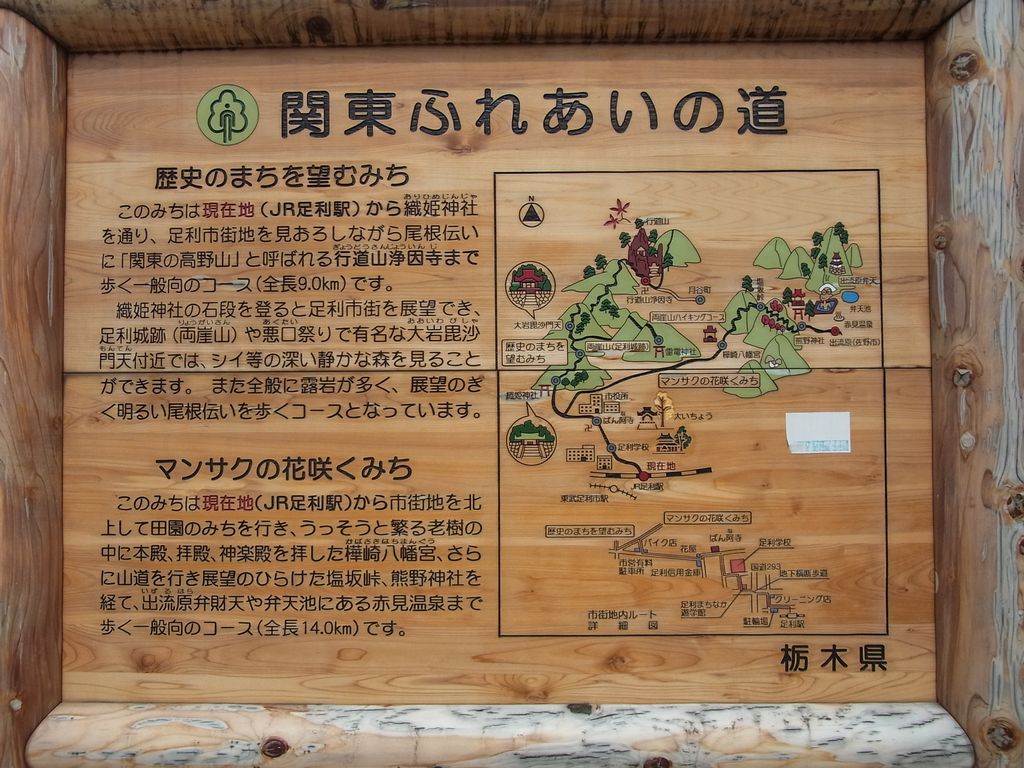 関東ふれあいの道
歴史のまちを望むみち
このみちは現在地(JR足利駅)から織姫神社
を通り、足利市街地を見おろしながら尾根伝い
に「関東の高野山」と呼ばれる行道山浄因寺まで
歩く一般向のコース(全長9.0km)です。
織姫神社の石段を登ると足利市街を展望でき、
足利城跡(両崖山)や悪口祭りで有名な大岩毘沙
門天付近では、シイ等の深い静かな森を見ること
ができます。また全般に露岩が多く、展望のき
く明るい尾根伝いを歩くコースとなっています。
マンサクの花咲くみち
このみちは現在地(JR足利駅)から市街地を北
上して田園のみちを行き、うっそうと繁る老樹の
中に本殿、拝殿、神楽殿を拝した樺崎八幡宮、さら
に山道を行き展望のひらけた塩坂峠、熊野神社を
経て、出流原弁財天や弁天池にある赤見温泉まで
歩く一般向のコース(全長14.0km)です。
N
行道山
行道山浄因寺
月谷町
大岩毘沙門天
両崖山ハイキングコース
歴史のまちを
望むみち
両崖山(足利城跡)
雷電神社
樺崎八幡宮
塩坂峠
出流原弁天
弁天池
赤見温泉
熊野神社
出流原(佐野市)
マンサクの花咲くみち
織姫神社
市役所
ばん阿寺
大いちょう
足利学校
現在地
JR足利駅
東武足利市駅
マンサクの花咲くみち
歴史のまちを望むみち
バイク店
花屋
ばん阿寺
足利学校
市営有料
駐車所
足利信用金庫
国道293
地下横断歩道
足利まちなか
遊学館
クリーニング店
駐輪場
足利駅
市街地内ルート
詳細図
栃木県